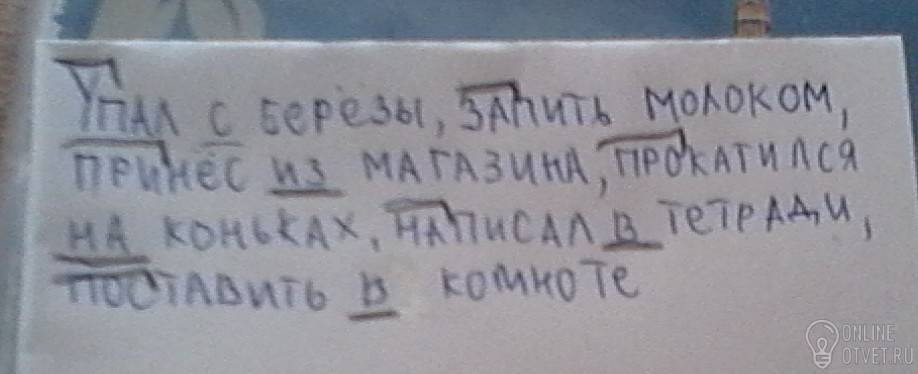 Упал с берёзы, запить молоком,
принёс из магазина, прокатился
на коньках, написал в тетради,
поставить в комноте
ONLINE
OTVET.RU